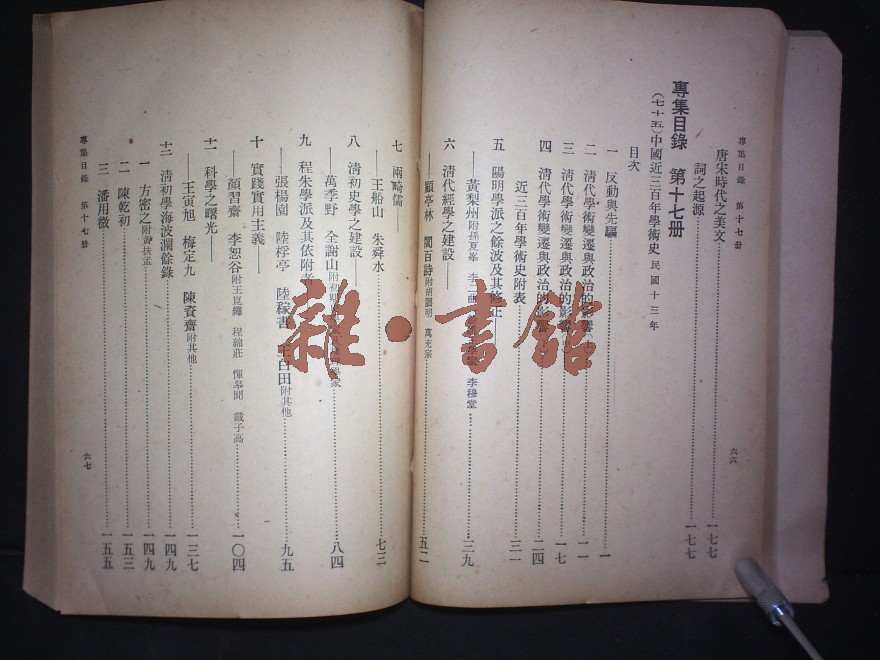 專集目錄 第十七册
六六
唐宋時代之美文……一七七
詞之起源……一七七
專集目錄 第十七册
(七十五)中國近三百年學術史 民國十三年
目次
一 反動與先驅……一
二 清代學術變遷與政治的影響上……一一
三 清代學術變遷與政治的影響……一七
四 清代學術變遷與政治的影響……二四
近三百年學術史附表……三一
五 陽明學派之餘波及其修正——
黃梨州附孫夏峯 李二曲 李穆堂……三九
六 清代經學之建設——
顧亭林 閻百詩附胡朏明 萬充宗……五二
七 兩畸儒——
王船山 朱舜水……七三
八 清初史學之建設——
萬季野 全謝山附初期……學家……八四
九 程朱學派及其依附者——
張楊園 陸桴亭 陸稼書 王白田附其他……九五
十 實踐實用主義——
顏習齋 李恕谷附王崑繩 程綿莊 惲皋聞 戴子高……一〇四
十一 科學之曙光——
王寅旭 梅定九 陳資齋附其他……一三七
十二 清初學海波瀾餘錄……一四九
一 方密之附黃扶孟……一四九
二 陳乾初……一五三
三 潘用微……一五五
專集目錄 第十七册
六七
雜·書館